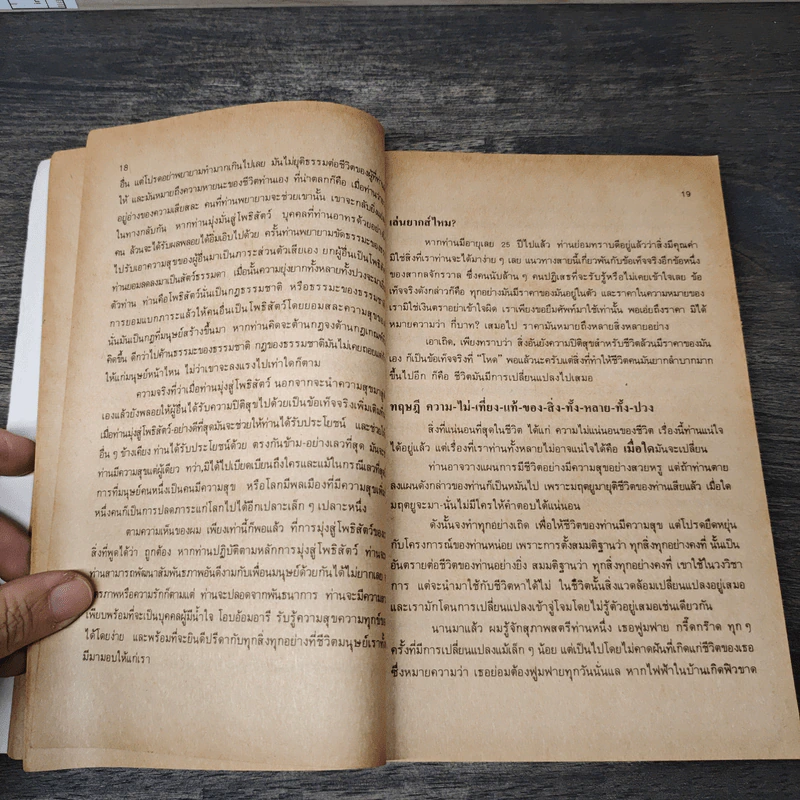 18
อื่น แต่โปรดอย่าพยายามทำมากเกินไปเลย มันไม่ยุติธรรมต่อชีวิตของผู้ที่ท่าน
ให้ และมันหมายถึงความหายนะของชีวิตท่านเอง ที่น่าตลกก็คือ เมื่อท่าน
อยู่อ่างของความเสียสละ คนที่ท่านพยายามจะช่วยเขานั้น เขาจะกลับยิ่ง
ในทางกลับกัน หากท่านมุ่งมั่นสู่โพธิสัตว์ บุคคลที่ท่านอาทรด้วยอย่าง
คน ล้วนจะได้รับผลพลอยได้อิ่มเอิบไปด้วย ครั้นท่านพยายามขัดธรรมะของ
ไปรับเอาความสุขของผู้อื่นมาเป็นภาระส่วนตัวเสียเอง ยกผู้อื่นเป็นโพธิ
ท่านยอมลดลงมาเป็นสัตว์ธรรมดา เมื่อนั้นความยุ่งยากทั้งหลายทั้งปวงจะมา
ตัวท่าน ท่านคือโพธิสัตว์นั่นเป็นกฎธรรมชาติ หรือธรรมะของธรรมชาติ
การยอมแบกภาระแล้วให้คนอื่นเป็นโพธิสัตว์โดยยอมสละความสุข
นั่นมันเป็นกฎที่มนุษย์สร้างขึ้นมา หากท่านคิดจะต้านกฎจงต้านกฎเกณฑ์
คิดขึ้น ดีกว่าไปต้านธรรมะของธรรมชาติ กฎของธรรมชาติมันไม่เคยยอมแพ้
ให้แก่มนุษย์หน้าไหน ไม่ว่าเขาจะลงแรงไปเท่าใดก็ตาม
ความจริงที่ว่าเมื่อท่านมุ่งสู่โพธิสัตว์ นอกจากจะนำความสุขมาสู่
เองแล้วยังพลอยให้ผู้อื่นได้รับความปิติสุขไปด้วยเป็นข้อเท็จจริงเพิ่มเติม
เมื่อท่านมุ่งสู่โพธิสัตว์-อย่างดีที่สุดมันจะช่วยให้ท่านได้รับประโยชน์ และช่วย
อื่น ๆ ข้างเคียง ท่านได้รับประโยชน์ด้วย ตรงกันข้าม-อย่างเลวที่สุด มัน
ท่านมีความสุขแต่ผู้เดียว ทว่า,มิได้ไปเบียดเบียนถึงใครและแม้ในกรณีเลวที่สุด
การที่มนุษย์คนหนึ่งเป็นคนมีความสุข หรือโลกมีพลเมืองที่มีความสุข
หนึ่งคนก็เป็นการปลดภาระแก่โลกไปได้อีกเปลาะเล็ก ๆ เปลาะหนึ่ง
ตามความเห็นของผม เพียงเท่านี้ก็พอแล้ว ที่การมุ่งสู่โพธิสัตว์ของ
สิ่งที่พูดได้ว่า ถูกต้อง หากท่านปฏิบัติตามหลักการมุ่งสู่โพธิสัตว์ ท่านจะ
ท่านสามารถพัฒนาสัมพันธภาพอันดีงามกับเพื่อนมนุษย์ด้วยกันได้ไม่ยากเลย
รภาพหรือความรักก็ตามแต่ ท่านจะปลอดจากพันธนาการ ท่านจะมีความ
เพียบพร้อมที่จะเป็นบุคคลผู้มีน้ำใจ โอบอ้อมอารี รับรู้ความสุขความทุกข์
ได้โดยง่าย และพร้อมที่จะยินดีปรีดากับทุกสิ่งทุกอย่างที่ชีวิตมนุษย์เรา
มีมามอบให้แก่เรา
19
เล่นยากส์ไหม?
หากท่านมีอายุเลย 25 ปีไปแล้ว ท่านย่อมทราบดีอยู่แล้วว่าสิ่งมีคุณค่า
มิใช่สิ่งที่เราท่านจะได้มาง่าย ๆ เลย แนวทางสายนี้เกี่ยวพันกับข้อเท็จจริงอีกข้อหนึ่ง
ของสากลจักรวาล ซึ่งคนนับล้าน ๆ คนปฏิเสธที่จะรับรู้หรือไม่เคยเข้าใจเลย ข้อ
เท็จจริงดังกล่าวก็คือ ทุกอย่างมันมีราคาของมันอยู่ในตัว และราคาในความหมายของ
เรามิใช่เงินตราอย่าเข้าใจผิด เราเพียงขอยืมศัพท์มาใช้เท่านั้น พอเอ่ยถึงราคา มิได้
หมายความว่า กี่บาท? เสมอไป ราคามันหมายถึงหลายสิ่งหลายอย่าง
เอาเถิด, เพียงทราบว่า สิ่งอันยังความปิติสุขสำหรับชีวิตล้วนมีราคาของมัน
เอง ก็เป็นข้อเท็จจริงที่ "โหด" พอแล้วนะครับแต่สิ่งที่ทำให้ชีวิตคนมันยากลำบากมาก
ขึ้นไปอีก ก็คือ ชีวิตมันมีการเปลี่ยนแปลงไปเสมอ
ทฤษฎี ความ-ไม่-เที่ยง-แท้-ของ-สิ่ง-ทั้ง-หลาย-ทั้ง-ปวง
สิ่งที่แน่นอนที่สุดในชีวิต ได้แก่ ความไม่แน่นอนของชีวิต เรื่องนี้ท่านแน่ใจ
ได้อยู่แล้ว แต่เรื่องที่เราท่านทั้งหลายไม่อาจแน่ใจได้ก็คือ เมื่อใดมันจะเปลี่ยน
ท่านอาจวางแผนการมีชีวิตอย่างมีความสุขอย่างสวยหรู แต่ถ้าท่านตาย
ลงแผนดังกล่าวของท่านก็เป็นหมันไป เพราะมฤตยูมายุติชีวิตของท่านเสียแล้ว เมื่อใด
มฤตยูจะมา-นั่นไม่มีใครให้คำตอบได้แน่นอน
ดังนั้นจงทำทุกอย่างเถิด เพื่อให้ชีวิตของท่านมีความสุข แต่โปรดยืดหยุ่น
กับโครงการณ์ของท่านหน่อย เพราะการตั้งสมมติฐานว่า ทุกสิ่งทุกอย่างคงที่ นั้นเป็น
อันตรายต่อชีวิตของท่านอย่างยิ่ง สมมติฐานว่า ทุกสิ่งทุกอย่างคงที่ เขาใช้ในวงวิชา
การ แต่จะนำมาใช้กับชีวิตหาได้ไม่ ในชีวิตนั้นสิ่งแวดล้อมเปลี่ยนแปลงอยู่เสมอ
และเรามักโดนการเปลี่ยนแปลงเข้าจู่โจมโดยไม่รู้ตัวอยู่เสมอเช่นเดียวกัน
นานมาแล้ว ผมรู้จักสุภาพสตรีท่านหนึ่ง เธอฟูมฟาย กรี๊ดกร๊าด ทุก ๆ
ครั้งที่มีการเปลี่ยนแปลงแม้เล็ก ๆ น้อย แต่เป็นไปโดยไม่คาดฝันที่เกิดแก่ชีวิตของเธอ
ซึ่งหมายความว่า เธอย่อมต้องฟูมฟายทุกวันนั่นแล หากไฟฟ้าในบ้านเกิดฟิวขาด